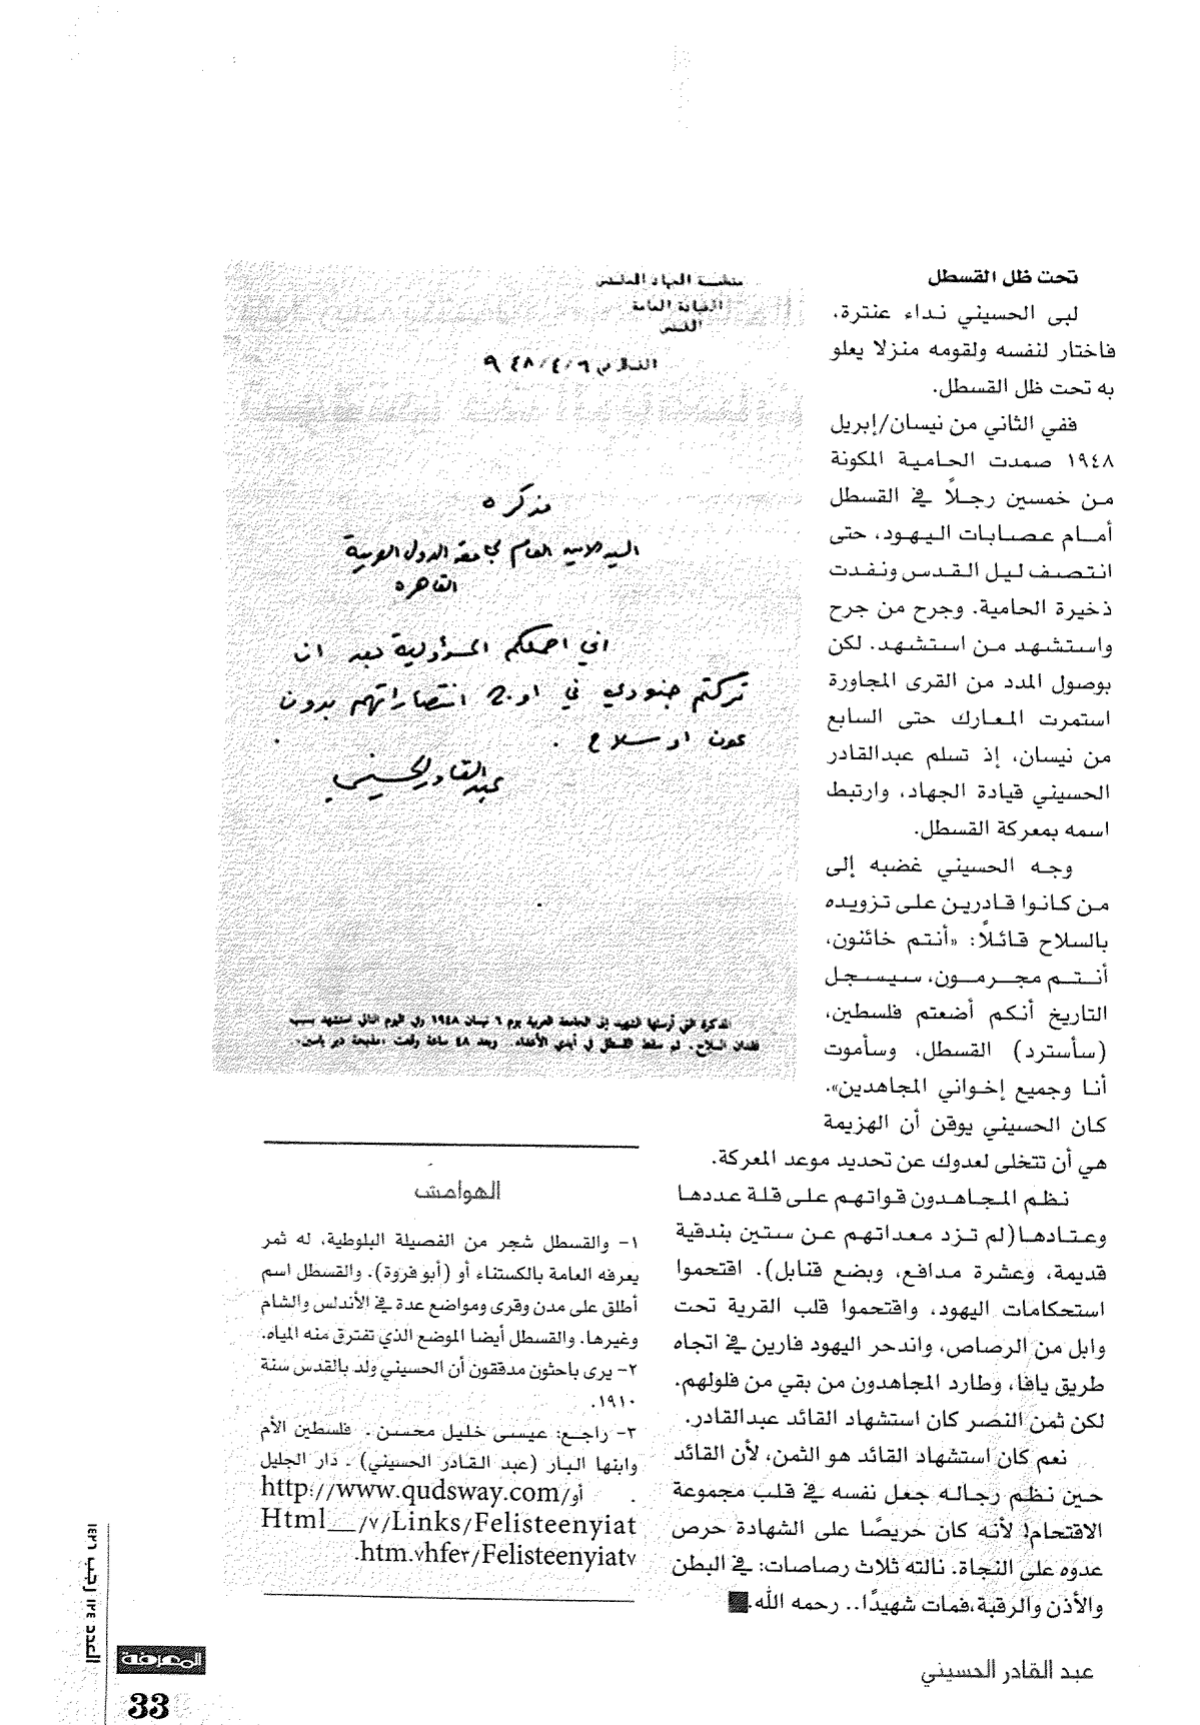 تحت ظل القسطل
لبى الحسيني نداء عنترة،
فاختار لنفسه ولقومه منزلا يعلو
به تحت ظل القسطل.
ففي الثاني من نيسان/إبريل
١٩٤٨ صمدت الحامية المكونة
من خمسين رجلاً في القسطل
أمام عصابات اليهود، حتى
انتصف ليل القدس ونفدت
ذخيرة الحامية. وجرح من جرح
واستشهد من استشهد. لكن
بوصول المدد من القرى المجاورة
استمرت المعارك حتى السابع
من نيسان، إذ تسلم عبدالقادر
الحسيني قيادة الجهاد، وارتبط
اسمه بمعركة القسطل.
وجه الحسيني غضبه إلى
من كانوا قادرين على تزويده
بالسلاح قائلاً: «أنتم خائنون،
أنتم مجرمون، سيسجل
التاريخ أنكم أضعتم فلسطين،
(سأسترد) القسطل، وسأموت
أنا وجميع إخواني المجاهدين».
كان الحسيني يوقن أن الهزيمة
هي أن تتخلى لعدوك عن تحديد موعد المعركة.
نظم المجاهدون قواتهم على قلة عددها
وعتادها(لم تزد معداتهم عن ستين بندقية
قديمة، وعشرة مدافع، وبضع قنابل). اقتحموا
استحكامات اليهود، واقتحموا قلب القرية تحت
وابل من الرصاص، واندحر اليهود فارين في اتجاه
طريق يافا، وطارد المجاهدون من بقي من فلولهم.
لكن ثمن النصر كان استشهاد القائد عبدالقادر.
نعم كان استشهاد القائد هو الثمن، لأن القائد
حين نظم رجاله جعل نفسه في قلب مجموعة
الاقتحام! لأنه كان حريصًا على الشهادة حرص
عدوه على النجاة. نالته ثلاث رصاصات: في البطن
والأذن والرقبة،فمات شهيدًا.. رحمه الله.
منظمة الجهاد المقدس
القيادة العامة
القدس
القدس في ٩٤٨/٤/٦
مذكره
السيد الامين العام لجامعة الدول العربية
القاهره
اني احملكم المسؤولية بعد ان
تركتم جنودي في اوج انتصاراتهم بدون
عون او سلاح .
عبد القادر الحسيني
المذكرة التي أرسلها الشهيد إلى الجامعة العربية يوم ٦ نيسان ١٩٤٨ وفي اليوم التالي استشهد بسبب
فقدان السلاح. ثم سقط القسطل في أيدي الأعداء. وبعد ٤٨ ساعة وقعت «مذبحة دير ياسين».
الهوامش
١- والقسطل شجر من الفصيلة البلوطية، له ثمر
يعرفه العامة بالكستناء أو (أبو فروة). والقسطل اسم
أطلق على مدن وقرى ومواضع عدة في الأندلس والشام
وغيرها. والقسطل أيضا الموضع الذي تفترق منه المياه.
٢- يرى باحثون مدققون أن الحسيني ولد بالقدس سنة
١٩١٠.
٣- راجع: عيسى خليل محسن . فلسطين الأم
وابنها البار (عبد القادر الحسيني) . دار الجليل
. أو/http://www.qudsway.com
Html__/٧/Links/Felisteenyiat
.htm.٧hfe٢/Felisteenyiat٧
عبد القادر الحسيني
العدد ١٢٤ رجب ١٤٢٦
المعرفة
33